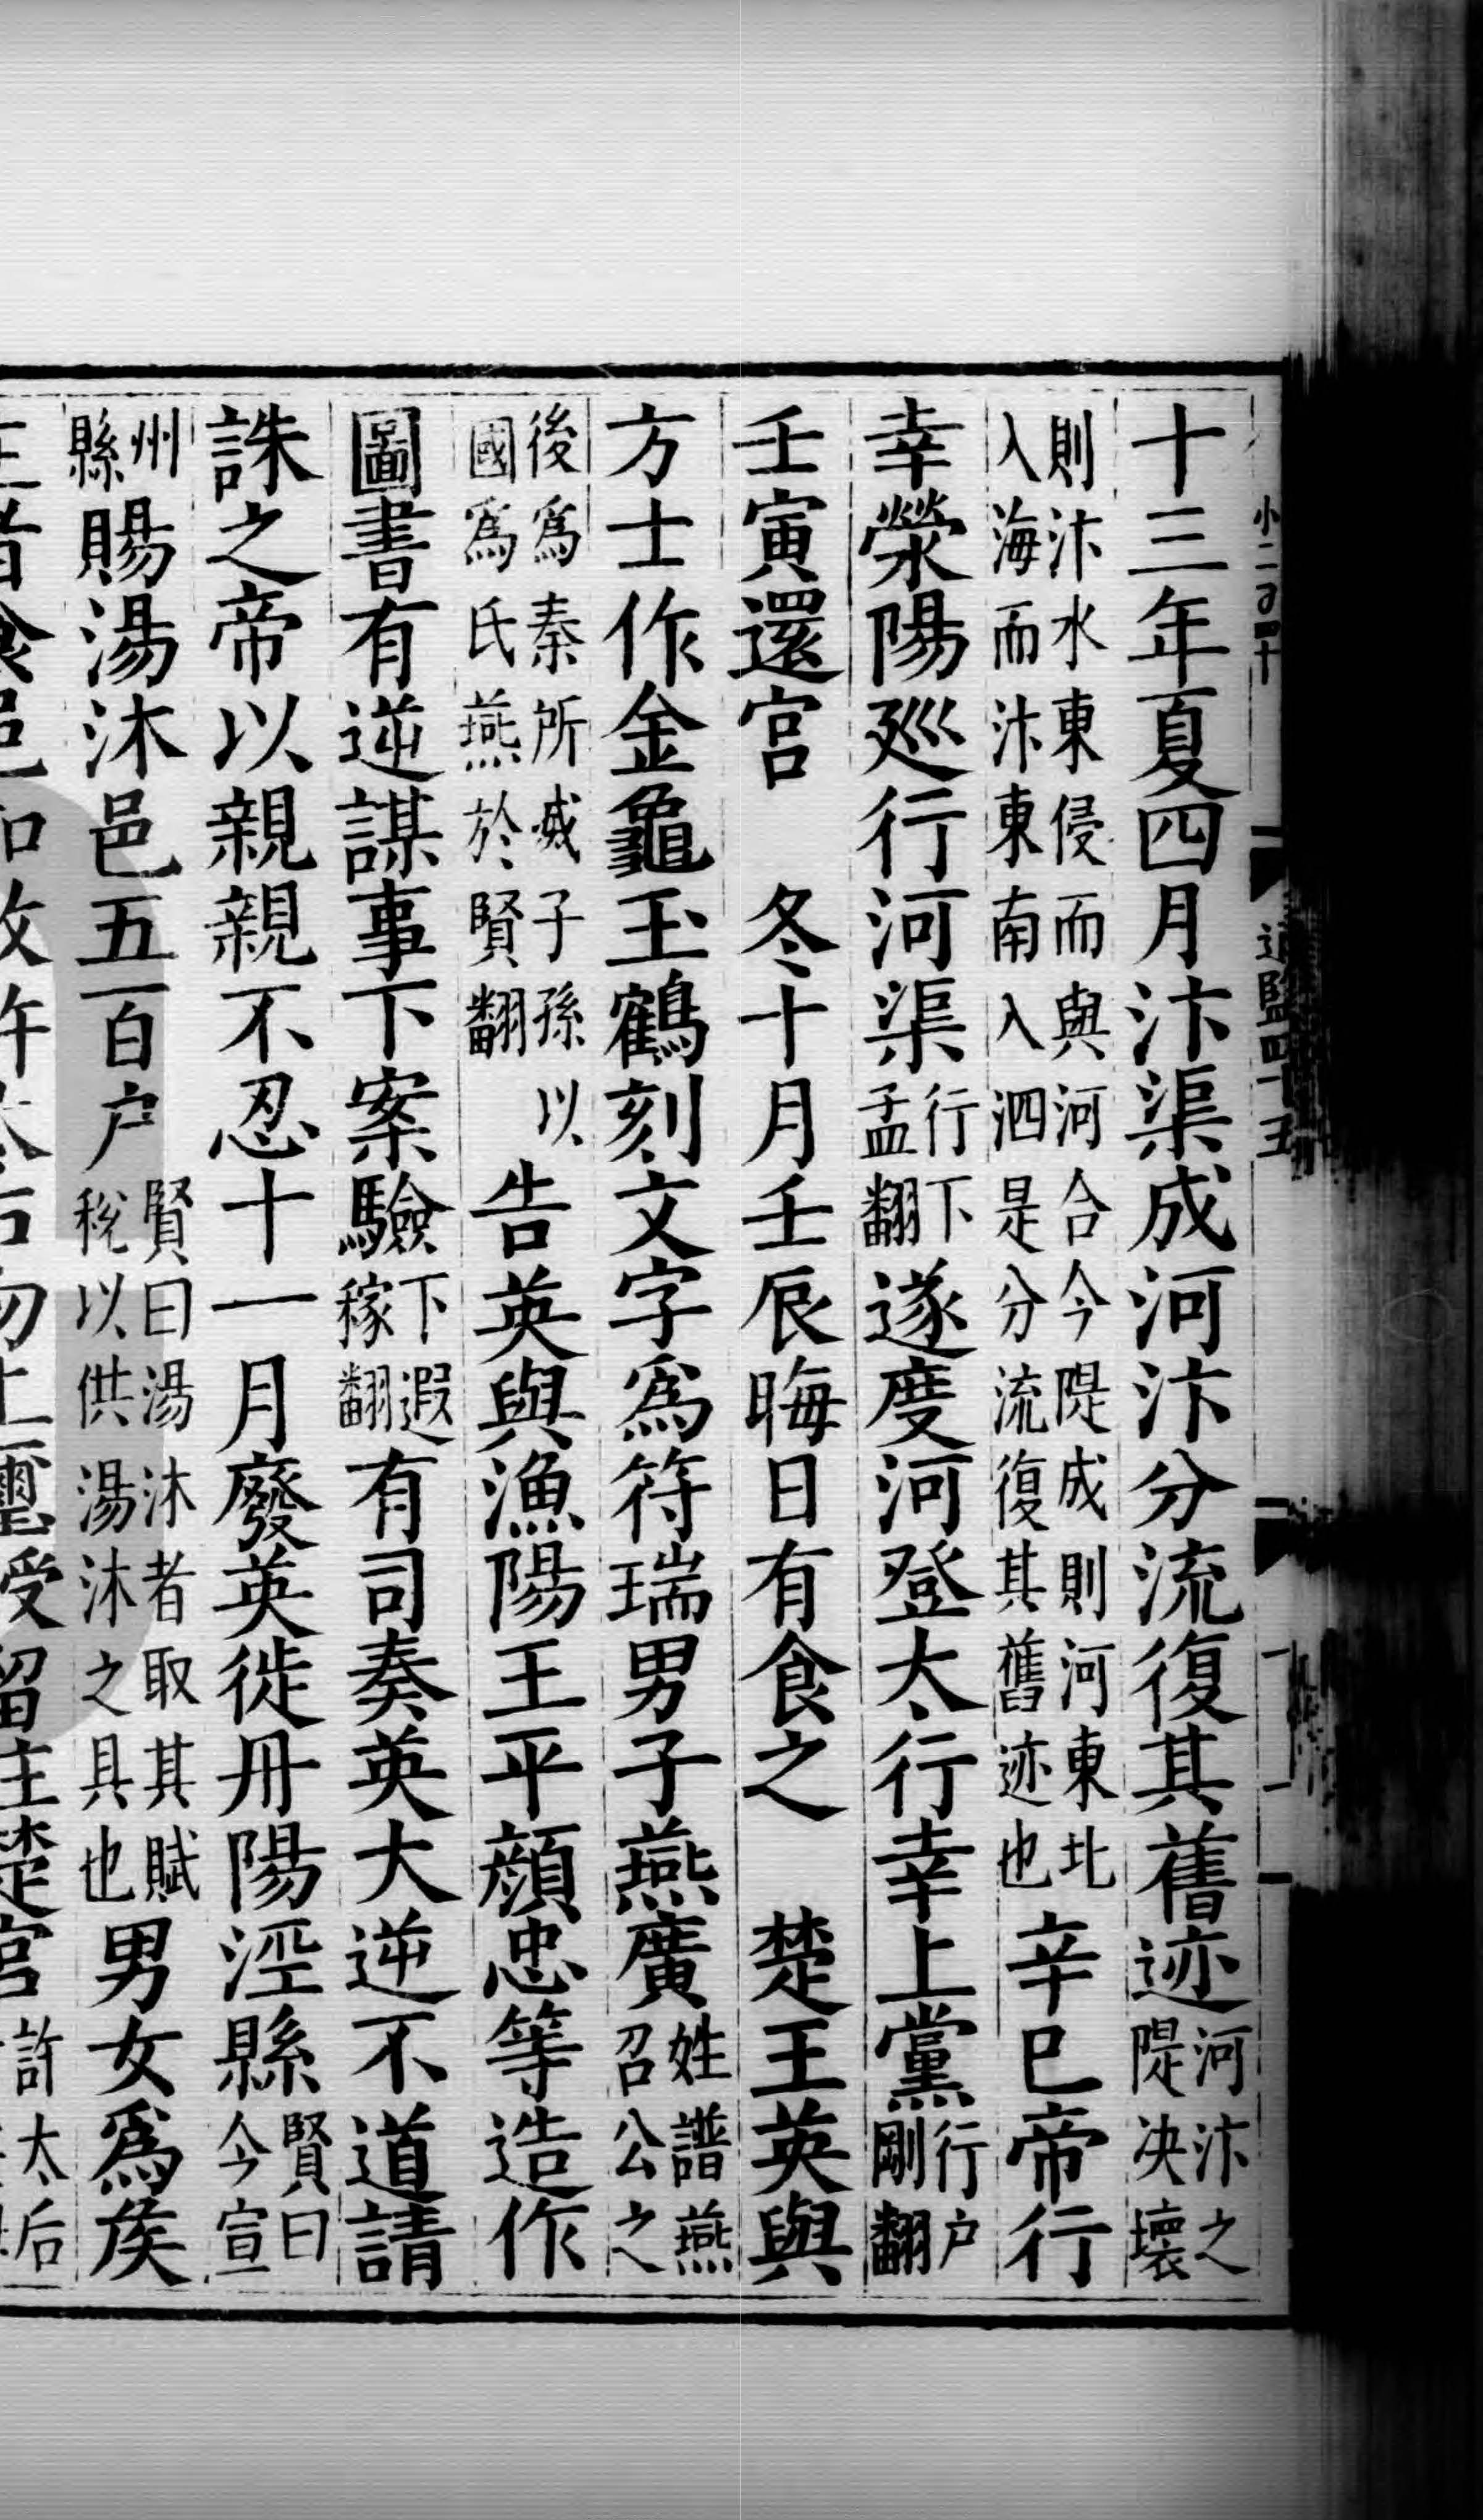 十三年夏四月汴渠成河汴分流復其舊迹河汴之隄決壞
則汴水東侵而與河合今隄成則河東北入海而汴東南入泗是分流復其舊迹也辛巳帝行
幸滎陽廵行河渠行下孟翻遂度河登太行幸上黨行户剛翻
壬寅還宮　冬十月壬辰晦日有食之　楚王英與
方士作金龜玉鶴刻文字爲符瑞男子燕廣姓譜燕召公之
後爲秦所烕子孫以國爲氏燕於賢翻告英與漁陽王平顔忠等造作
圖書有逆謀事下案驗下遐稼翻有司奏英大逆不道請
誅之帝以親親不忍十一月廢英徙丹陽涇縣賢曰今宣
州縣賜湯沐邑五百户賢曰湯沐者取其賦稅以供湯沐之具也男女爲矦